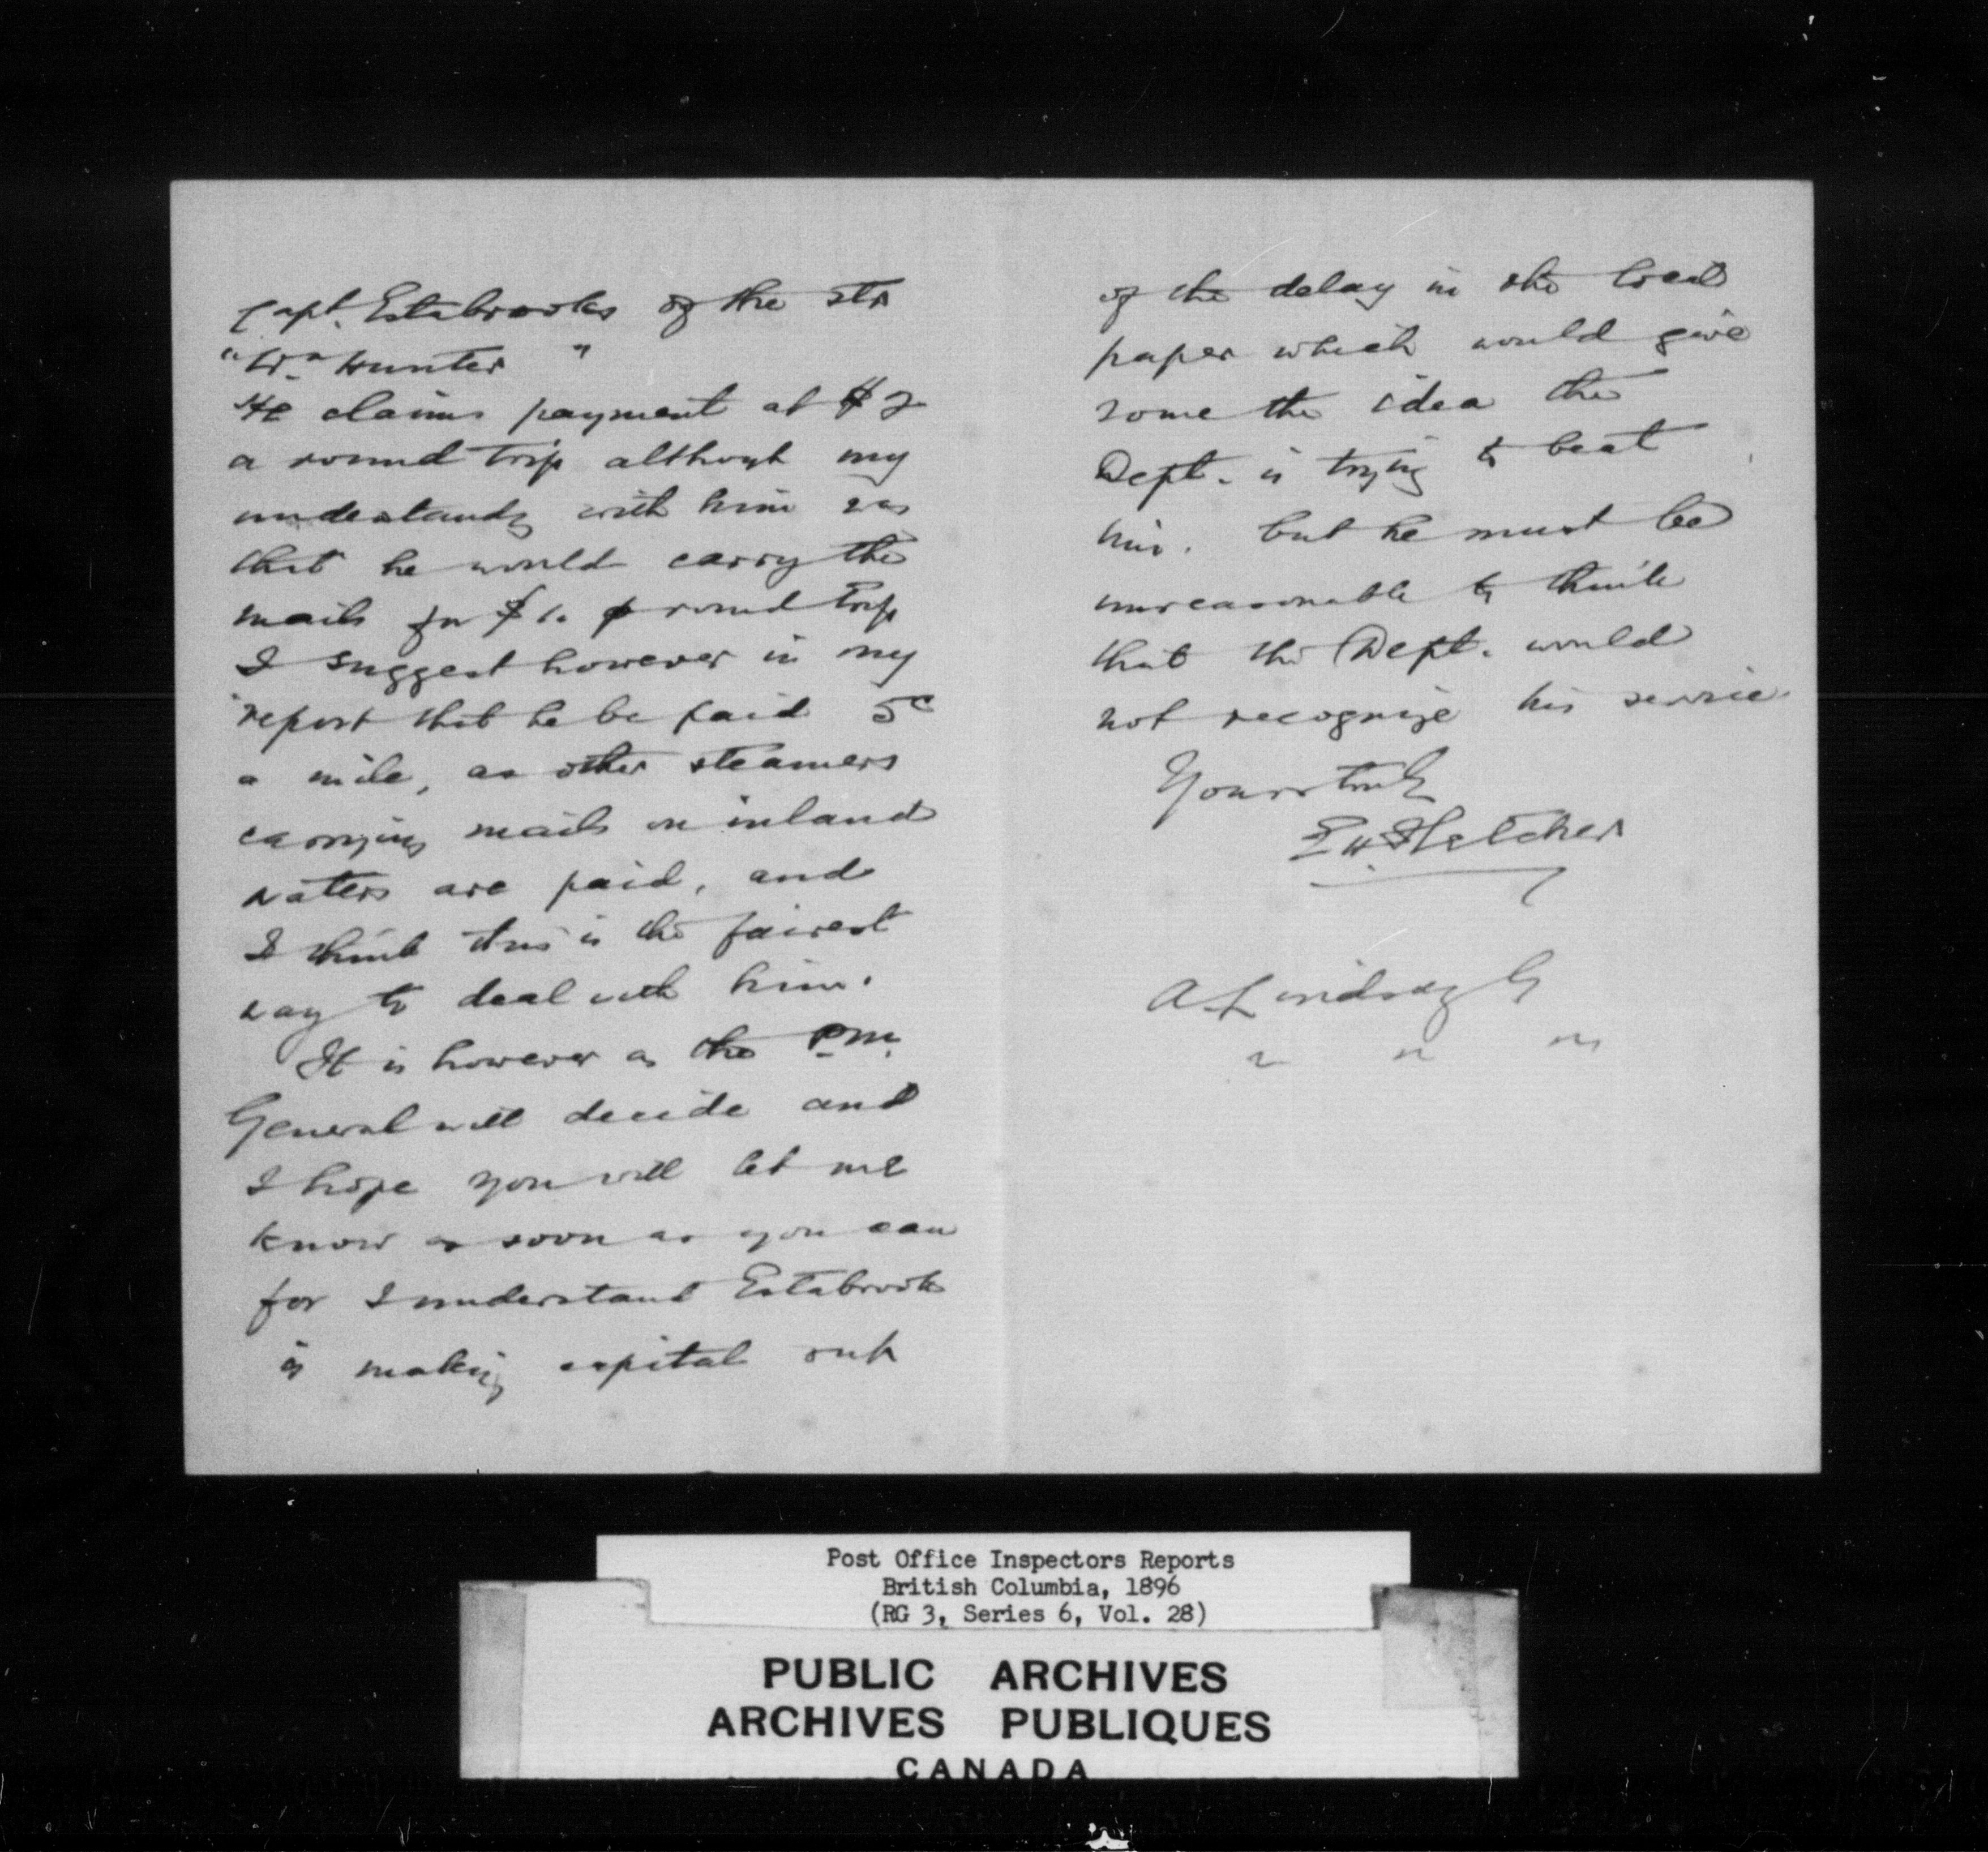 Capt. Estabrooks of the str
"Wm Hunter"
He claims payment at $2
a round trip although my
understandg with him was
that he would carry the
mails for $1. p round trip
I suggest however in my
report that he be paid 5c
a mile, as other steamers
carrying mails on inland
waters are paid, and
I think this is the fairest
way to deal with him.
It is however as the P.M.
General will decide and
I hope you will let me
know as soon as you can
for I understand Estabrooks
is making capital out
of the delay in the local
paper which would give
some the idea the
Dept. is trying to beat
him. but he must be
unreasonable to think
that the Dept. would
not recognize his service
Yours truly
E H Fletcher
A Lindsay
" " "
Post Office Inspectors Reports
British Columbia, 1896
(RG 3, Series 6, Vol. 28)
PUBLIC ARCHIVES
ARCHIVES PUBLIQUES
CANADA